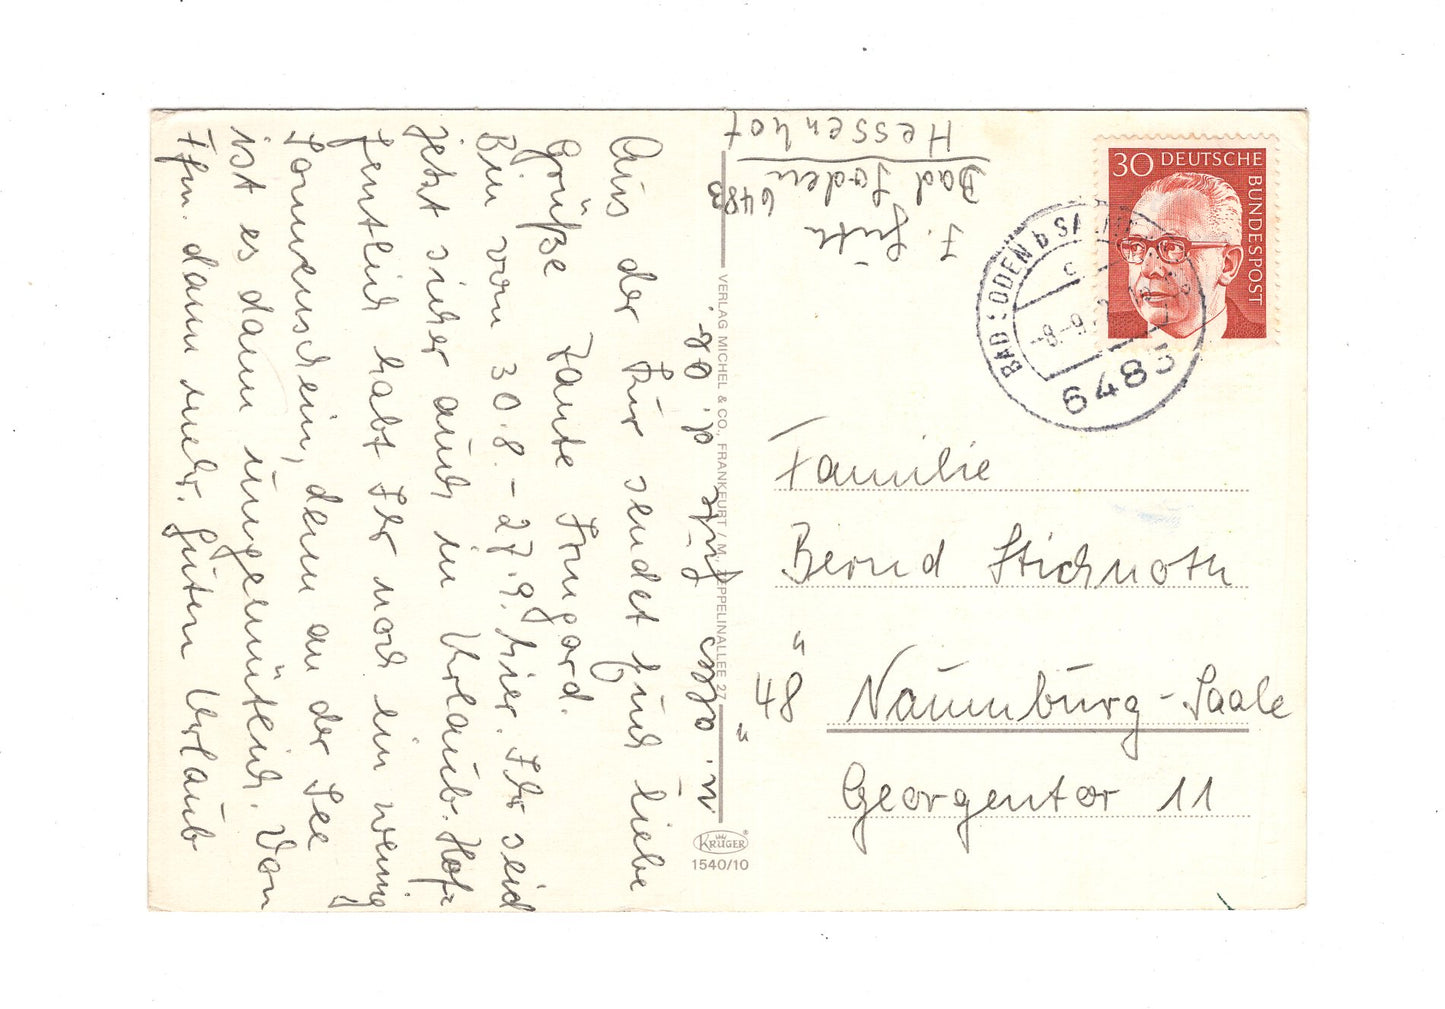 Aus der Kur sendet Euch liebe
Grüße Tante Irmgard.
Bin vom 30.8. - 27.9. hier. Ihr seid
jetzt sicher auch in Urlaub. Hof-
fentlich habt Ihr noch ein wenig
Sonnenschein, denn an der See
ist es dann ungemütlich. Von
Ffm. dann mehr. Guten Urlaub
u.
d. Or.
Hessenhof
Bad Soden
6483
30 DEUTSCHE
BUNDESPOST
BAD SODEN b SALMÜ
-8.-9.
6483
VERLAG MICHEL & CO., FRANKFURT / M., ZEPPELINALLEE 27
KRÜGER
1540/10
Familie
Bernd Stichnoth
"48" Naumburg-Saale
Georgentor 11